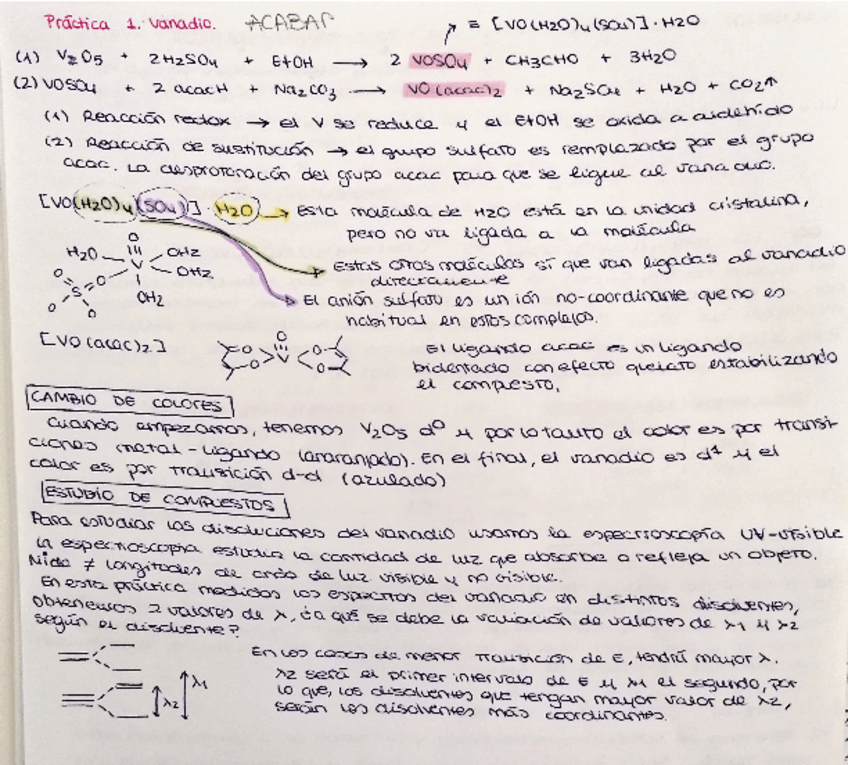 Práctica 1. Vanadio. ACABAR
= [VO(H2O)4(SO4)]·H2O
(1) V2O5 + 2H2SO4 + EtOH → 2 VOSO4 + CH3CHO + 3H2O
(2) VOSO4 + 2 acacH + Na2CO3 → VO(acac)2 + Na2SO4 + H2O + CO2↑
(1) Reacción redox → el V se reduce y el EtOH se oxida a aldehído
(2) Reacción de sustitución → el grupo sulfato es remplazado por el grupo
acac. La desprotonación del grupo acac para que se ligue al vanadio.
[VO(H2O)4(SO4)]·H2O → Esta molécula de H2O está en la unidad cristalina,
pero no va ligada a la molécula
Estas otras moléculas sí que van ligadas al vanadio
directamente
El anión sulfato es un ión no-coordinante que no es
habitual en estos complejos.
O
H2O V OH2
OH2
O O S O O
OH2
[VO(acac)2]
O
O O V O O
El ligando acac es un ligando
bidentado con efecto quelato estabilizando
el compuesto.
CAMBIO DE COLORES
Cuando empezamos, tenemos V2O5 d⁰ y por lo tanto el color es por transi-
ciones metal-ligando (anaranjado). En el final, el vanadio es d¹ y el
color es por transición d-d (azulado)
ESTUDIO DE COMPUESTOS
Para estudiar las disoluciones del vanadio usamos la espectroscopía UV-visible
la espectroscopia estudia la cantidad de luz que absorbe o refleja un objeto.
Mide ≠ longitudes de onda de luz visible y no visible.
En esta práctica medidos los espectros del vanadio en distintos disolventes,
obtenemos 2 valores de λ, ¿a qué se debe la variación de valores de λ1 y λ2
según el disolvente?
λ2 λ1
En los casos de menor transición de E, tendrá mayor λ.
λ2 será el primer intervalo de E y λ1 el segundo, por
lo que, los disolventes que tengan mayor valor de λ2,
serán los disolventes más coordinantes.